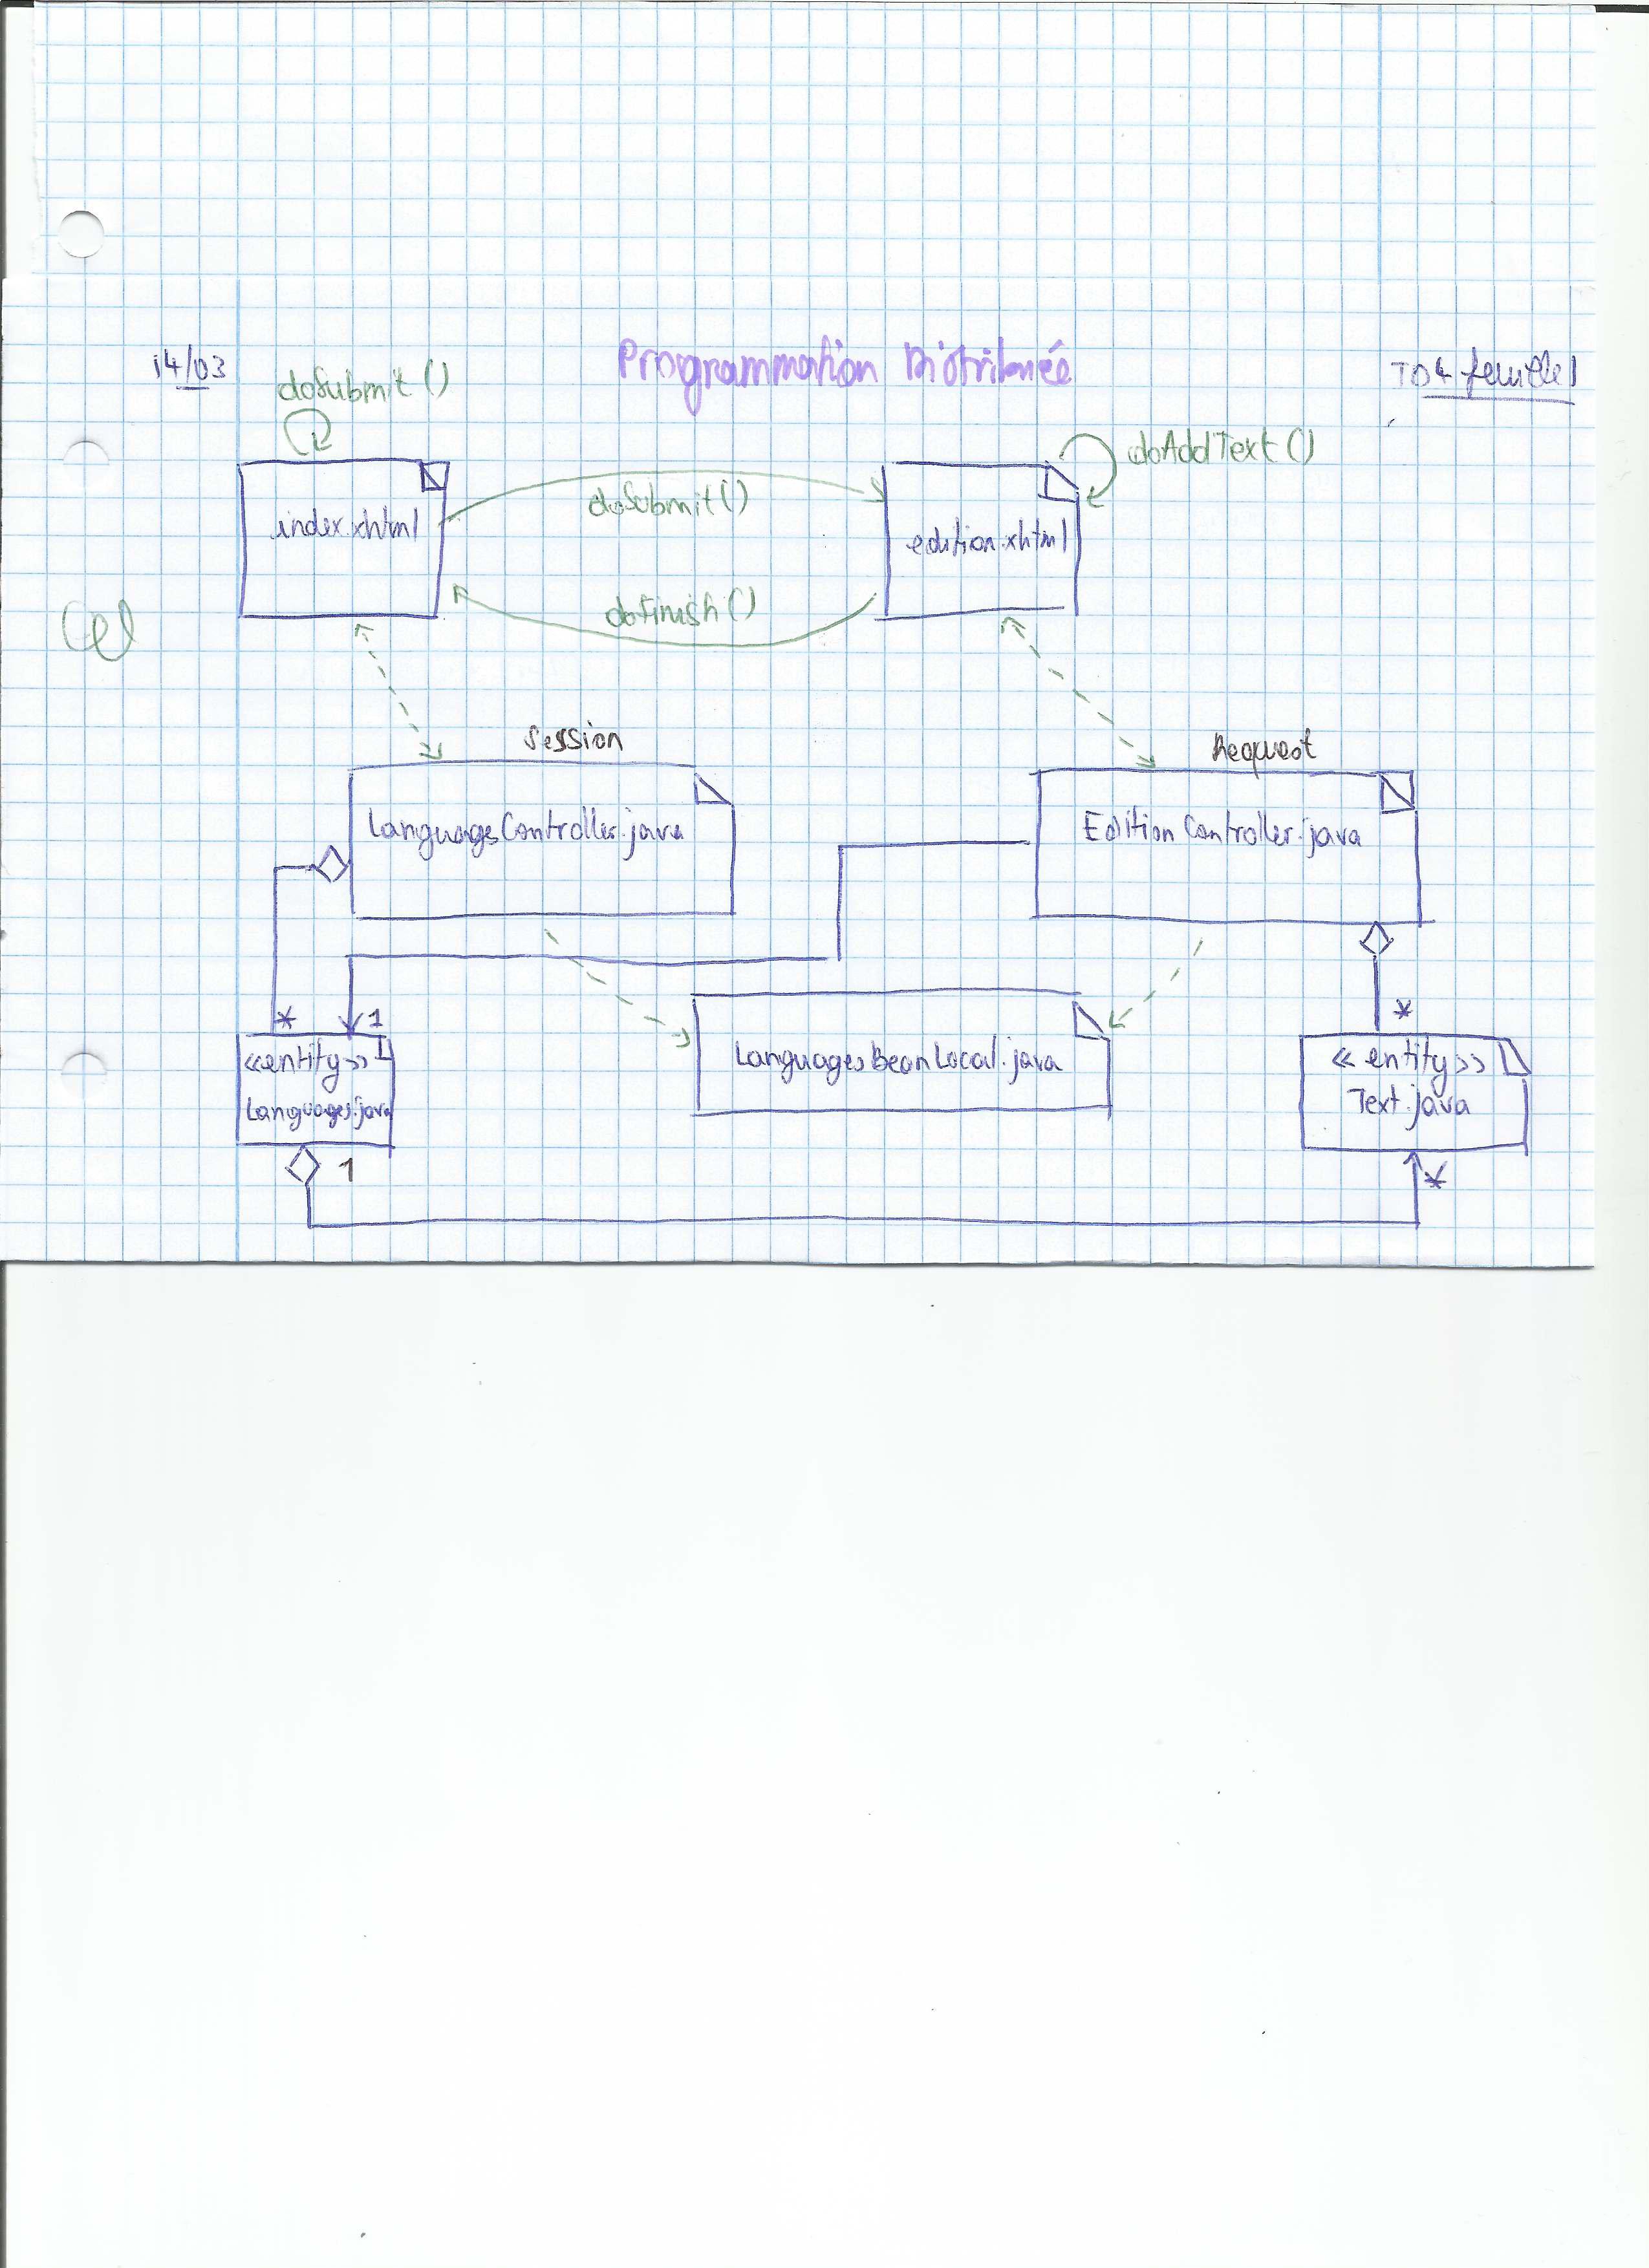 14/03
Programmation Distribuée
TD4 feuille 1
doSubmit()
doAddText()
index.xhtml
doSubmit()
edition.xhtml
doFinish()
Session
Request
LanguagesController.java
EditionController.java
* 1
*
<<entity>>
Languages.java
LanguagesBeanLocal.java
<<entity>>
Text.java
1
*